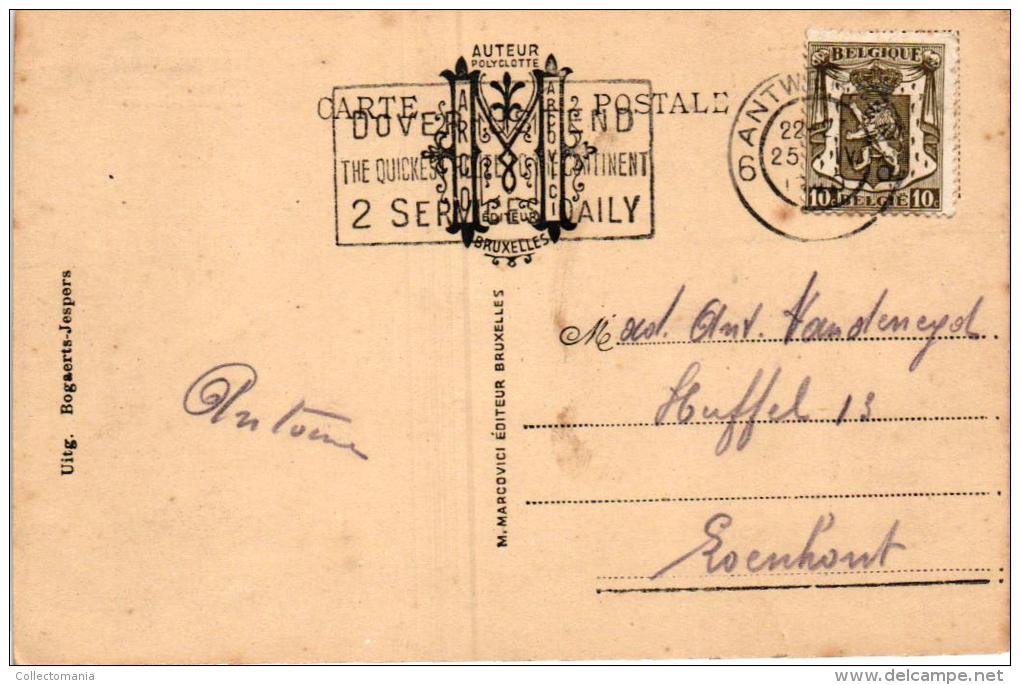 AUTEUR
POLYGLOTTE
CARTE POSTALE
DOVER END
THE QUICKEST CONTINENT
2 SERVICES DAILY
MARCOVICI
ÉDITEUR
BRUXELLES
BELGIQUE
10c BELGIË 10c
6 ANTW
22
25
Uitg. Bogaerts-Jespers
M. MARCOVICI ÉDITEUR BRUXELLES
Antoine
Mad. Ant. Vandeneyd
Huffel 13
Loenhout
Collectomania
www.delcampe.net